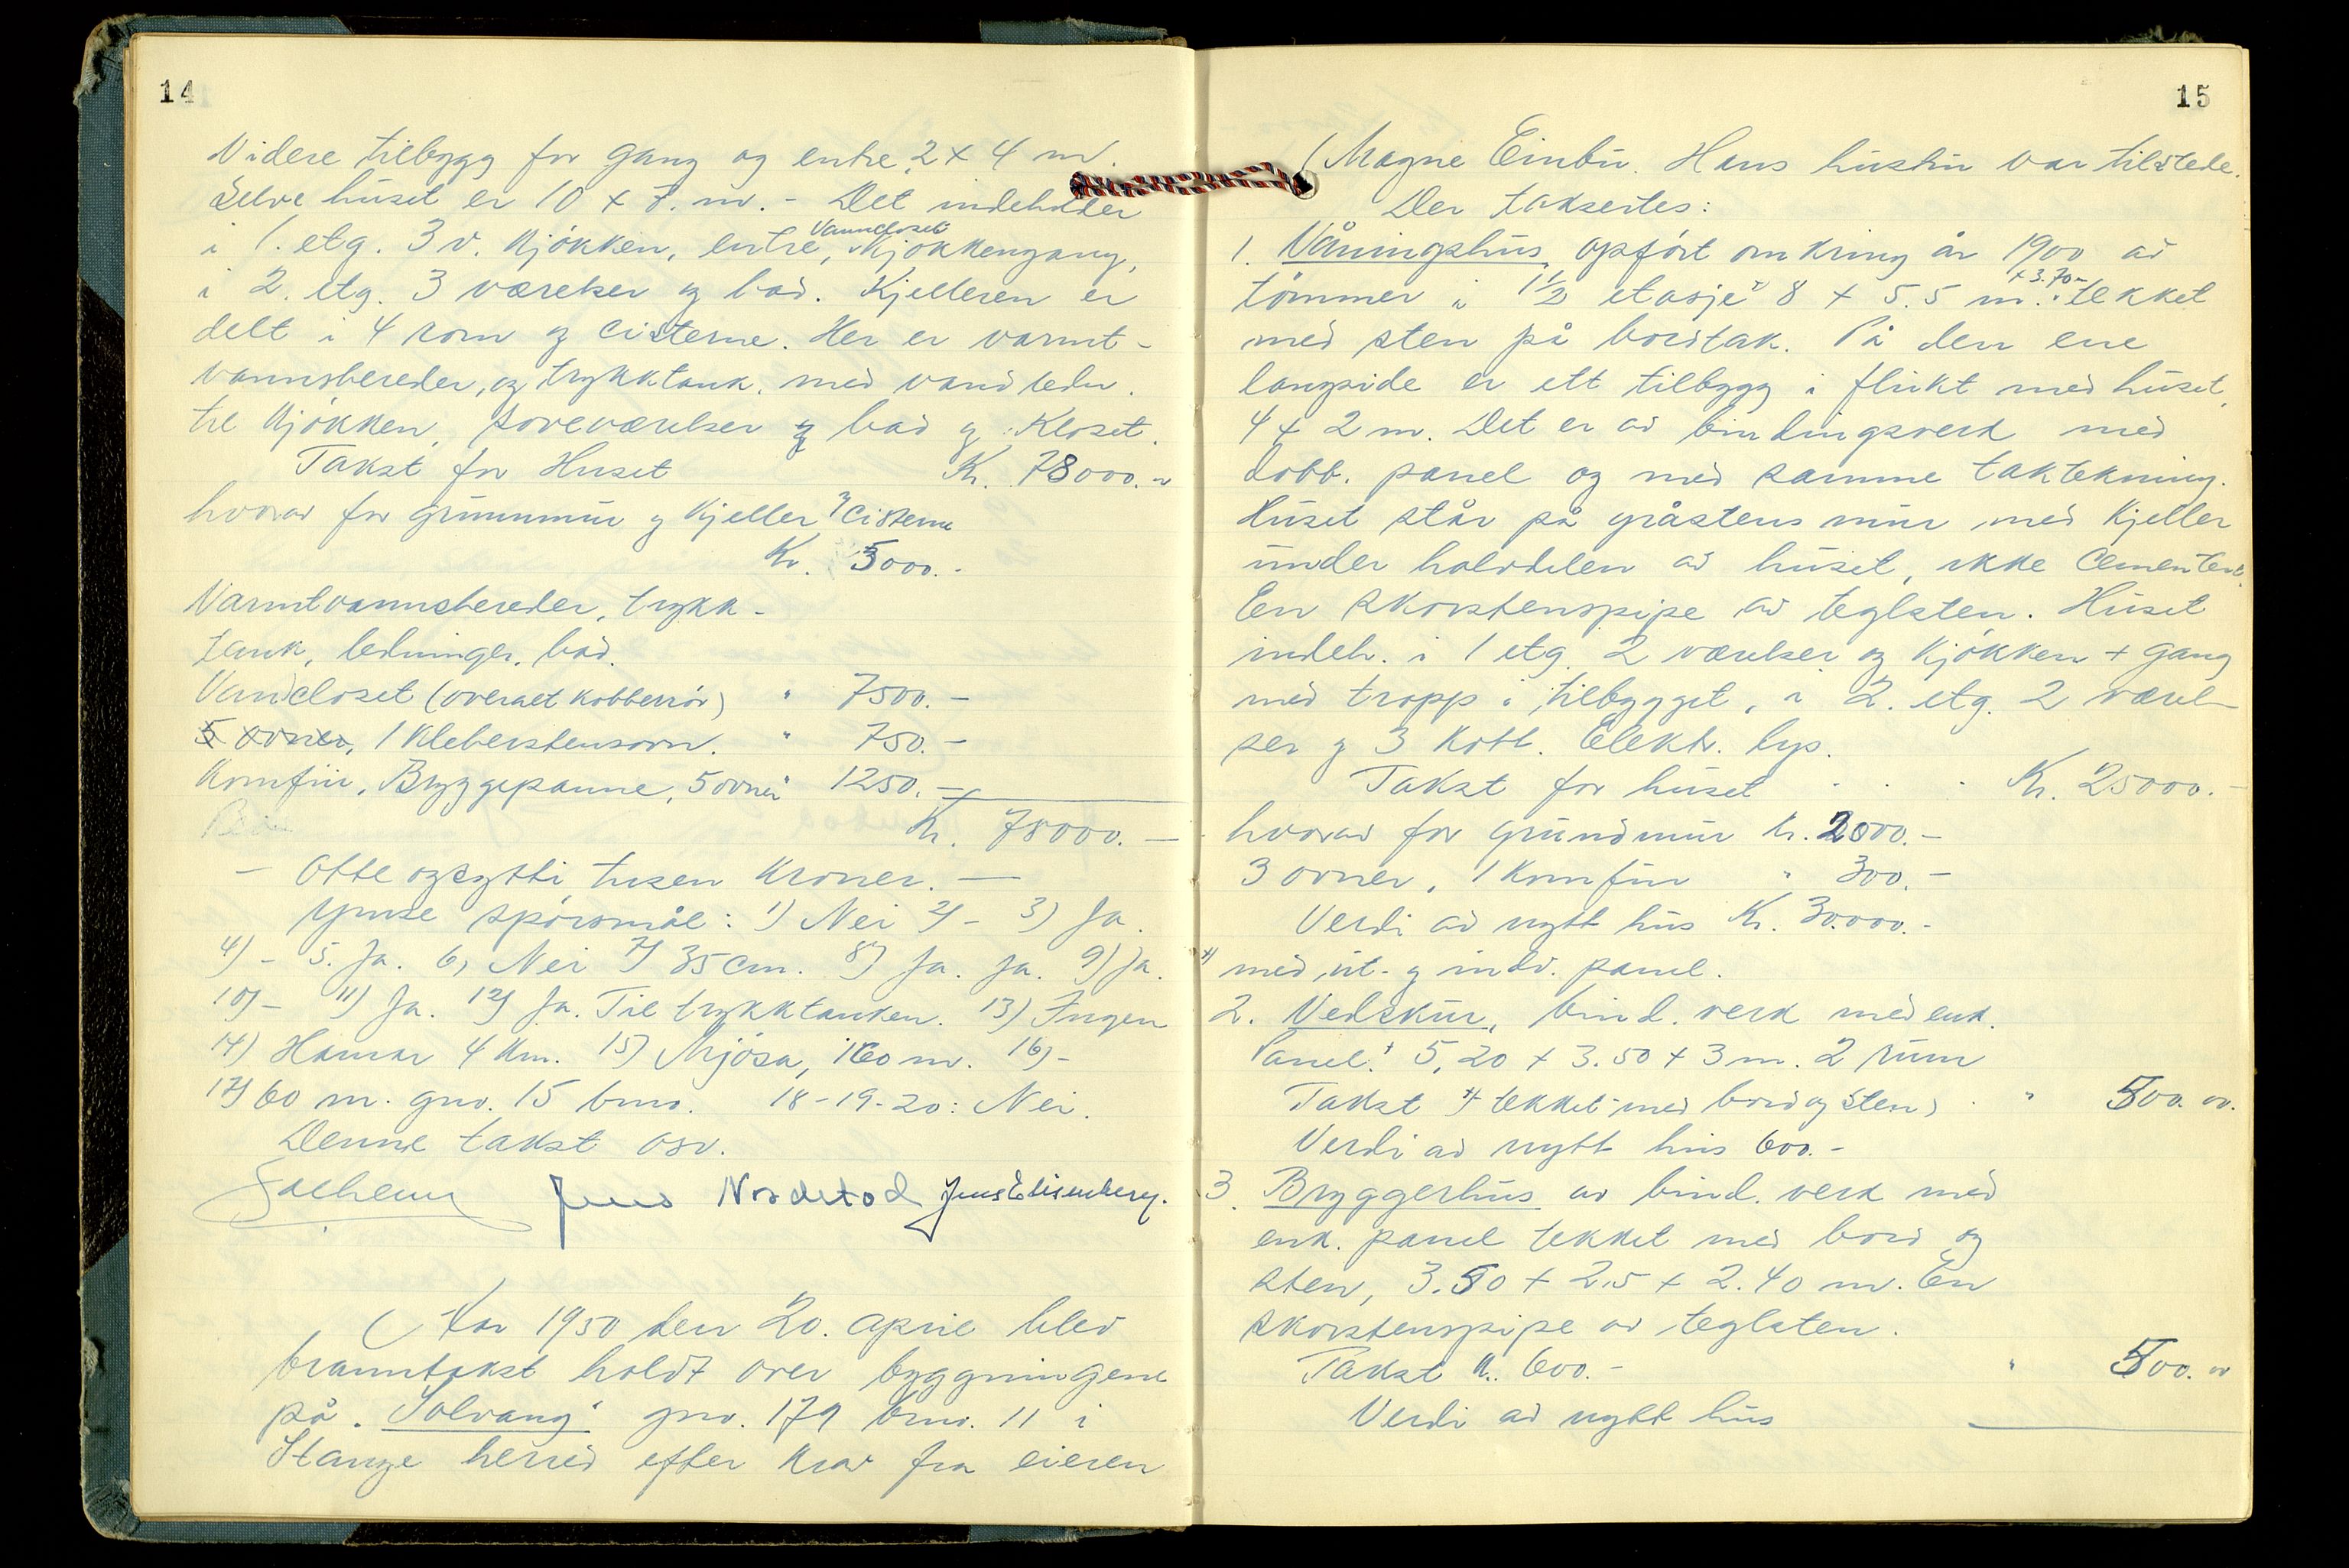 14
Videre tilbygg for gang og entre, 2 x 4 m.
Selve huset er 10 x 7. m. - Det indeholder
i 1. etg. 3 v. kjøkken, entre, Vanncloset kjøkkengang,
i 2. etg. 3 værelser og bad. Kjelleren er
delt i 4 rom og cisterne. Her er varmt-
vannsbereder, og trykktank. med vandledn.
til kjøkken, soveværelser og bad og Kloset.
Takst for Huset Kr. 78000.-
hvorav for grunnmur og kjeller og Cisterne
Kr. 5000.-
Varmtvannsbereder, trykk-
tank, ledninger, bad.
Vandcloset (overalt kobberrør) " 7500.-
5 ovner, 1 Kleberstensovn. " 750.-
Komfür, Bryggepanne, 5 ovner " 1250.-
Kr. 78000.-
- Otte og sytti tusen kroner. -
Ymse spørsmål: 1) Nei 2) - 3) Ja.
4) - 5. Ja. 6) Nei 7) 35 cm. 8) Ja. Ja. 9) Ja.
10) - 11) Ja. 12) Ja. Til trykktanken. 13) Ingen
14) Hamar 4 km. 15) Mjøsa, 160 m. 16) -
17) 60 m. gnr. 15 bnr. 18-19-20: Nei.
Denne takst osv.
Jens Nordstad Jens Elisenberg.
År 1950 den 20. april blev
branntakst holdt over bygningene
på "Solvang" gnr. 179 bnr. 11 i
Stange herred efter krav fra eieren
15
Magne Einbu. Hans hustru var tilstede.
Der taksertes:
1. Våningshus, opført omkring år 1900 av
tømmer i 1½ etasje x) 8 x 5.5 m. x 3.70- tekket
med sten på bordtak. På den ene
langside er ett tilbygg i flukt med huset,
4 x 2 m. Det er av bindingsverk med
dobb. panel og med samme taktekning.
Huset står på gråstens mur med kjeller
under halvdelen av huset, ikke cementert.
En skorstenspipe av teglsten. Huset
indeh. i 1 etg. 2 værelser og kjøkken + gang
med tropp i tilbygget, i 2. etg. 2 værel-
ser og 3 kott. Elektr. lys.
Takst for huset . . . Kr. 25000.-
hvorav for grundmur kr. 2000.-
3 ovner, 1 komfür " 300.-
Verdi av nytt hus Kr. 30.000.-
x) med ut- og indv. panel.
2. Vedskur, bind. verk med enk.
Panel. x 5,20 x 3.50 x 3 m. 2 rum
Takst x) tekket med bord og sten) . " 500.00.
Verdi av nytt hus 600.-
3. Bryggerhus av bind. verk med
enk. panel tekket med bord og
sten, 3.50 x 2.5 x 2.40 m. En
skorstenspipe av teglsten.
Takst k. 600.- " 500.00
Verdi av nytt hus